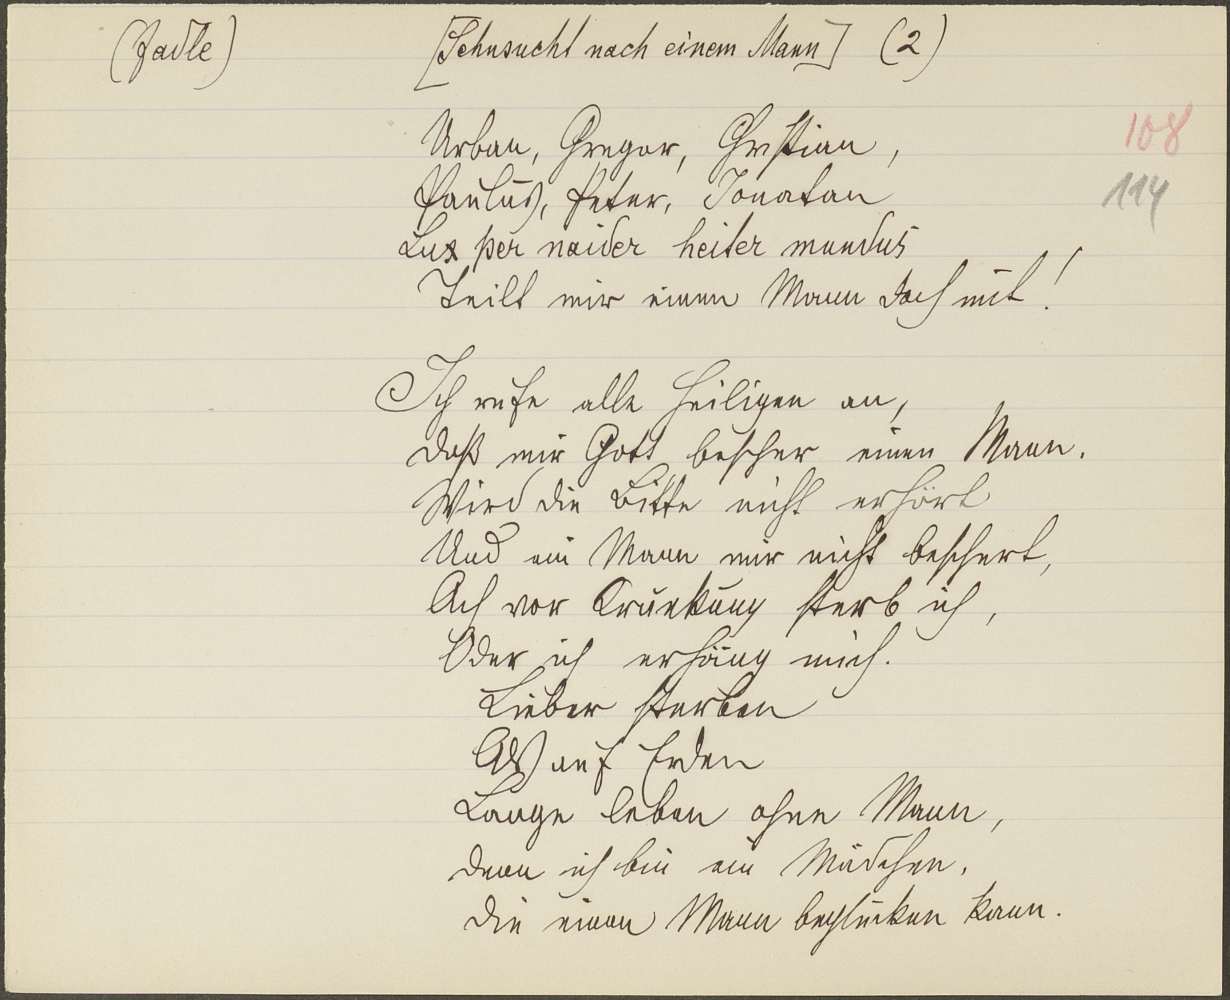 (Fadle) [Sehnsucht nach einem Mann] (2)
108
Urban, Gregor, Christian,
114
Paulus, Peter, Jonatan
Lux per naider heiter mundus
Teilt mir einen Mann doch mit!
Ich rufe alle Heiligen an,
daß mir Gott bescher einen Mann.
Wird die Bitte nicht erhört
Und ein Mann mir nicht beschert,
Ach vor Krankung sterb ich,
Oder ich erhäng mich.
Lieber sterben
Als auf Erden
Lange leben ohne Mann,
denn ich bin ein Mädchen,
die einen Mann beglücken kann.